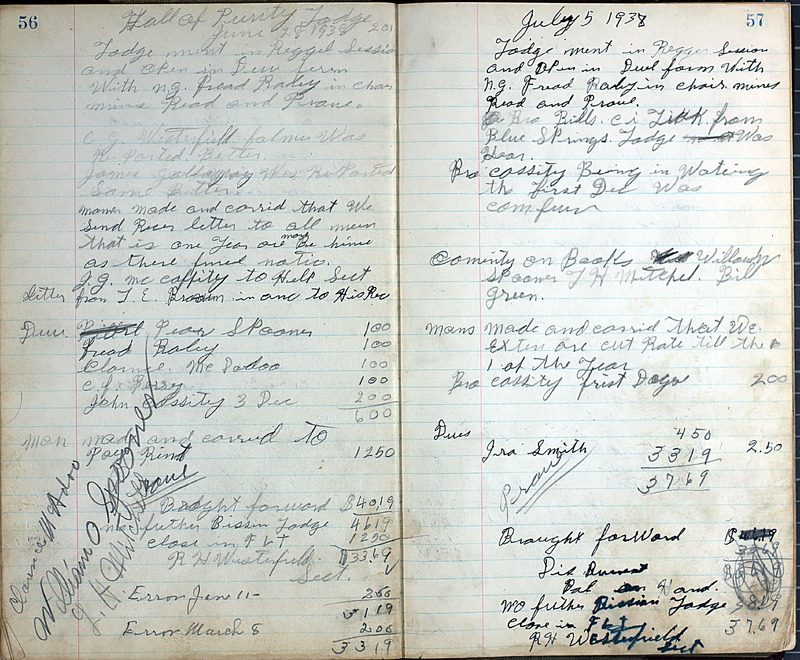 56
Hall of Purity Lodge
June 28 1938 201
Lodge ment in Reggel Session
and Open in Due form
With N.G. Fread Raley in chair
mins Read and Prove.
C. G. Westerfield palmer Was
Re Ported Better.
James Galloway Was Re Ported
Some Better.
mans made and carrid that We
Send Rees letter to all men
that is one Year are more Be hine
as there finel notic.
J. G. mc caffity to Help Sect
Letter from T. E. in anc to His Rec
Dues Pear Spooner 100
Fread Raley 100
Clarnce Mc Dadoo 100
C. F. Perry 100
John Cassity 3 Dec 200
600
Man made and carred to
Pay Rent 1250
Clarence McAdoo
William O Spooner
T. H. Mitchell
Prove
Brought forward $4019
no futher Bissin Lodge 4619
Close in F L T 1250
R H Westerfield $3369
Sect.
Error Jan 11- 250
3119
Error March 8 200
3319
57
July 5 1938
Lodge ment in Regger Session
and Open in Duel form With
N.G. Fread Raley in chair mines
Read and Proul.
Bro Bills. from
Blue Springs. Lodge Was
Hear.
Bro cassity Being in Wateing
the first Dec Was
confur
Comenty on Books Willown
Spooner T H Mitchel. Bill
Green.
Mans made and carrid that We
Exten are cut Rate till the
1 of the Year
Bro cassity frist Dogre 200
Dues 450
Ira Smith 3319 2.50
3769
Prove
Braught forWard
Did
Pat on Hand.
No futher Bissin Lodge
Close in F L T 3769
R H Westerfield
Sect